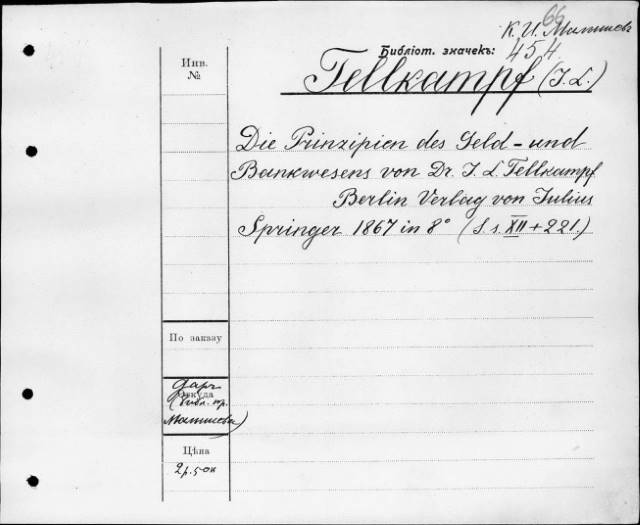 66
К. И. Малышевъ
Библіот. значекъ:
454.
Tellkampf (J. L.)
Инв.
№
Die Prinzipien des Geld- und
Bankwesens von Dr. J. L. Tellkampf
Berlin Verlag von Julius
Springer 1867 in 8° (S. s. XII + 221.)
По заказу
Даръ
Откуда
(библ. пр.
Малышева)
Цѣна
2 р. 50 к